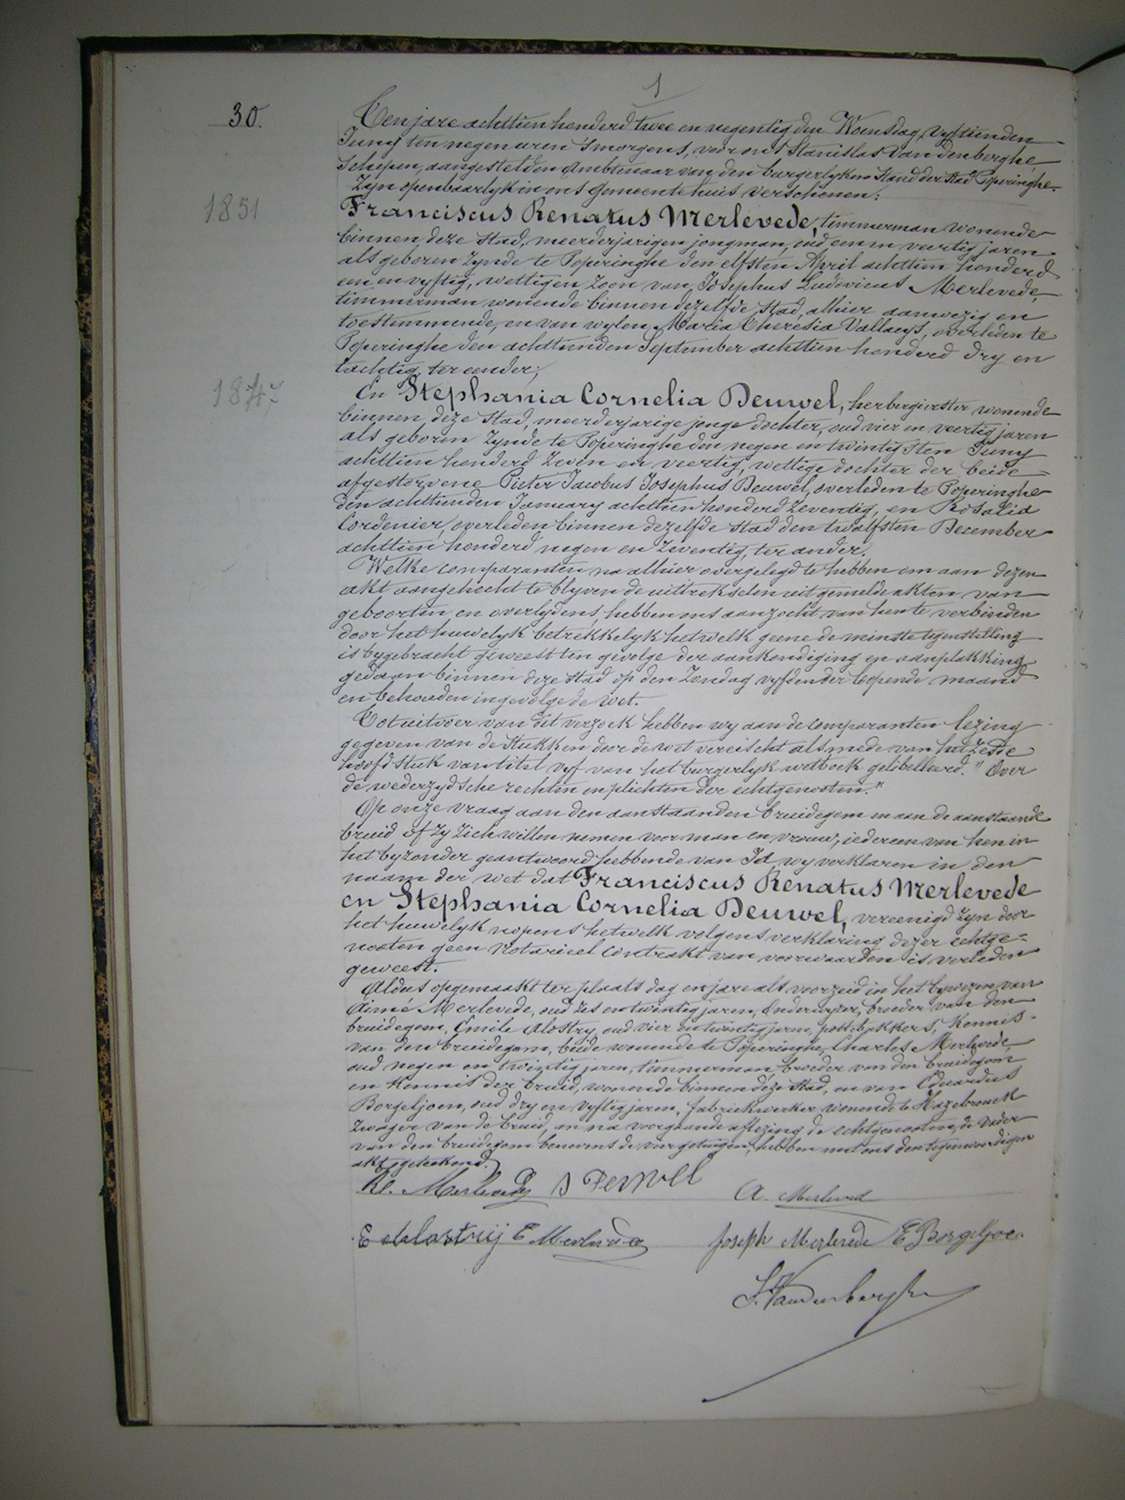 1
30.
Ten jare achttien honderd twee en negentig den Woensdag vyftienden
Juny ten negen uren 's morgens, voor ons Stanislas Van den berghe
Schepen, aangestelden Ambtenaar van den burgerlyken Stand der Stad Poperinghe
Zyn openbaarlyk in ons gemeentehuis verschenen:
1851
Franciscus Renatus Merlevede, timmerman wonende
binnen deze Stad, meerderjarigen jongman, oud een en veertig jaren
als geboren zynde te Poperinghe den elfsten April achttien honderd
een en vyftig, wettigen Zoon van Josephus Ludovicus Merlevede,
timmerman wonende binnen dezelfde Stad, alhier aanwezig en
toestemmende, en van wylen Maria Theresia Vallaeys, overleden te
Poperinghe den achttienden September achttien honderd dry en
tachtig, ter eender;
1847
En Stephania Cornelia Deuwel, herbergierster wonende
binnen deze Stad, meerderjarige jonge dochter, oud vier en veertig jaren
als geboren zynde te Poperinghe den negen en twintigsten Juny
achttien honderd Zeven en veertig, wettige dochter der beide
afgestorvene Pieter Jacobus Josephus Deuwel, overleden te Poperinghe
den achttienden January achttien honderd Zeventig, en Rosalia
Cordenier, overleden binnen dezelfde Stad den twalfsten December
achttien honderd negen en Zeventig, ter ander.
Welke comparanten na alhier overgelegd te hebben om aan dezen
akt aangehecht te blyven de uittrekselen uit gemelde akten van
geboorten en overlydens, hebben ons aanzocht van hen te verbinden
door het huwelyk betrekkelyk hetwelk geene de minste tegenstelling
is bygebracht geweest ten gevolge der aankondiging en aanplakking
gedaan binnen deze Stad op den Zondag vyfden der loopende maand
en behouden ingevolge de wet.
Tot uitvoer van dit verzoek hebben wy aan de comparanten lezing
gegeven van de stukken door de wet vereischt alsmede van het Zesde
hoofdstuk van titel vyf van het burgerlyk wetboek gelibelleerd. "Over
de wederzydsche rechten en plichten der echtgenooten."
Op onze vraag aan den aanstaanden bruidegom en aan de aanstaande
bruid of zy zich willen nemen voor man en vrouw, iedereen van hen in
het byzonder geantwoord hebbende van Ja, wy verklaren in den
naam der wet dat Franciscus Renatus Merlevede
en Stephania Cornelia Deuwel, vereenigd zyn door
het huwelyk nopens hetwelk volgens verklaring dezer echtge=
nooten geen notarieel contrakt van voorwaarden is verleden
geweest.
Aldus opgemaakt ter plaats dag en jare als voorzeid in het bywezen van
Aimé Merlevede, oud zes en twintig jaren, Onderwyzer, broeder van den
bruidegom, Emile Alostry, oud vier en twintig jaren, kennis
van den bruidegom, beide wonende te Poperinghe, Charles Merlevede
oud negen en twintig jaren, timmerman, broeder van den bruidegom
en Kennis der bruid, wonende binnen deze Stad, en van Eduardus
Borgeljoen, oud dry en vyftig jaren, fabriekwerker wonende te Hazebrouck
Zwager van de bruid, en na voorgaande aflezing de echtgenooten, de vader
van den bruidegom benevens de vier getuigen, hebben met ons den tegenwoordigen
akt geteekend.
Merlevede S Deuwel A. Merlevede
E Alostrij C Merlevede Joseph Merlevede E Borgeljoe.
S. Vandenberghe